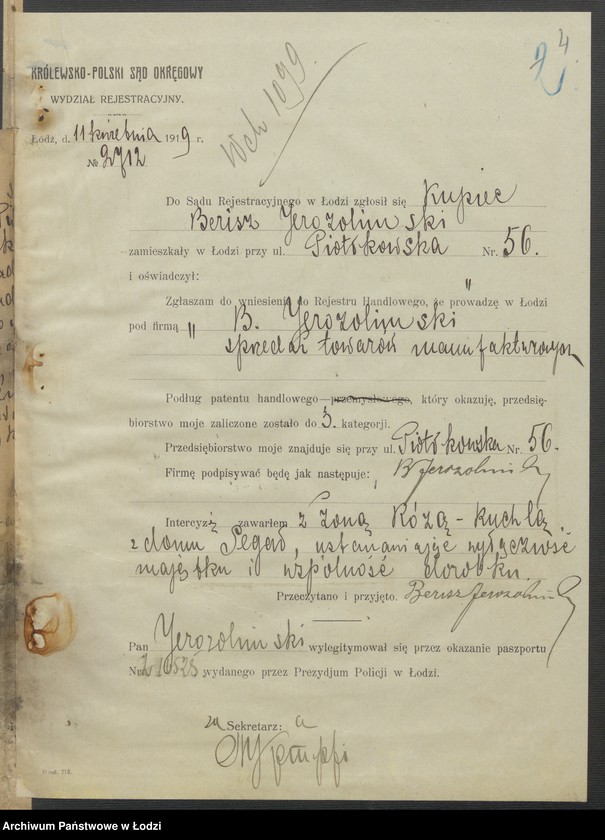 24
KRÓLEWSKO-POLSKI SĄD OKRĘGOWY
WYDZIAŁ REJESTRACYJNY.
Wch 1099.
Łódź, d. 11 kwietnia 1919 r.
№ 2712
Do Sądu Rejestracyjnego w Łodzi zgłosił się Kupiec
Berisz Jerozolimski
zamieszkały w Łodzi przy ul. Piotrkowska Nr. 56.
i oświadczył:
Zgłaszam do wniesienia do Rejestru Handlowego, że prowadzę w Łodzi
pod firmą „B. Jerozolimski"
sprzedaż towarów manufakturowych
Podług patentu handlowego-przemysłowego, który okazuję, przedsię-
biorstwo moje zaliczone zostało do 3. kategorji.
Przedsiębiorstwo moje znajduje się przy ul. Piotrkowska Nr. 56.
Firmę podpisywać będę jak następuje: B Jerozolimski
Intercyzę zawarłem z żoną Różą-Ruchlą
z domu , ustanawiając wyłączność
majątku i wspólność dorobku.
Przeczytano i przyjęto. Berisz Jerozolimski
Pan Jerozolimski wylegitymował się przez okazanie paszportu
Nr. wydanego przez Prezydjum Policji w Łodzi.
za Sekretarz: a
Archiwum Państwowe w Łodzi